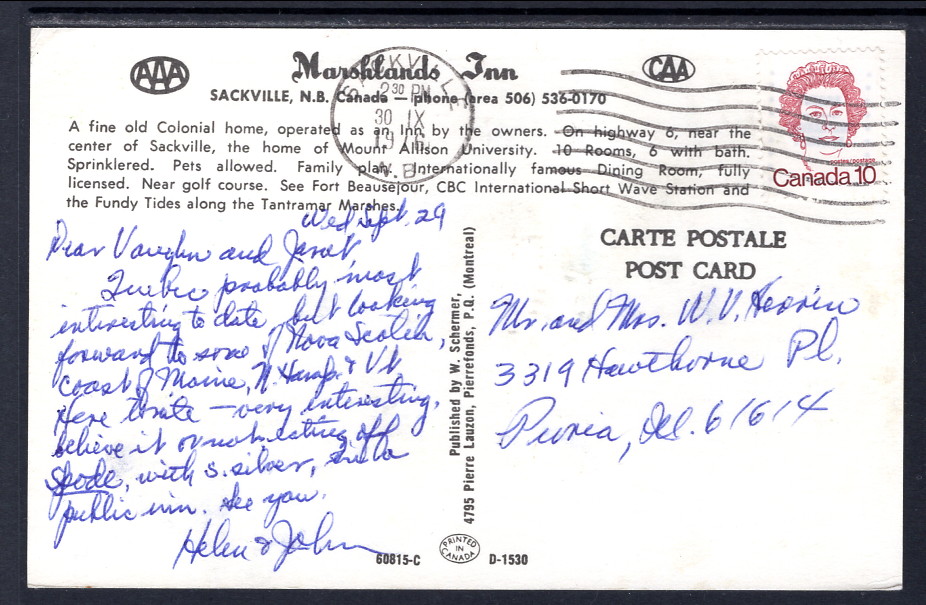 AAA
Marshlands Inn
CAA
SACKVILLE, N.B. Canada — phone (area 506) 536-0170
A fine old Colonial home, operated as an Inn by the owners. On highway 6, near the
center of Sackville, the home of Mount Allison University. 10 Rooms, 6 with bath.
Sprinklered. Pets allowed. Family plan. Internationally famous Dining Room, fully
licensed. Near golf course. See Fort Beausejour, CBC International Short Wave Station and
the Fundy Tides along the Tantramar Marshes.
SACKVILLE
12 30 PM
30 IX
19
N.B.
Canada 10
Wed Sept. 29
Dear Vaughn and Janet,
Quebec probably most
interesting to date, but looking
forward to some of Nova Scotia,
coast of Maine, N. Hamp. & Vt.
Here tonite — very interesting,
believe it or not eating off
Spode, with s. silver, in a
public inn. See you.
Helen & John
Published by W. Schermer,
4795 Pierre Lauzon, Pierrefonds, P.Q. (Montreal)
CARTE POSTALE
POST CARD
Mr. and Mrs. W. V.
3319 Hawthorne Pl.
Peoria, Ill. 61614
60815-C
PRINTED IN CANADA
D-1530